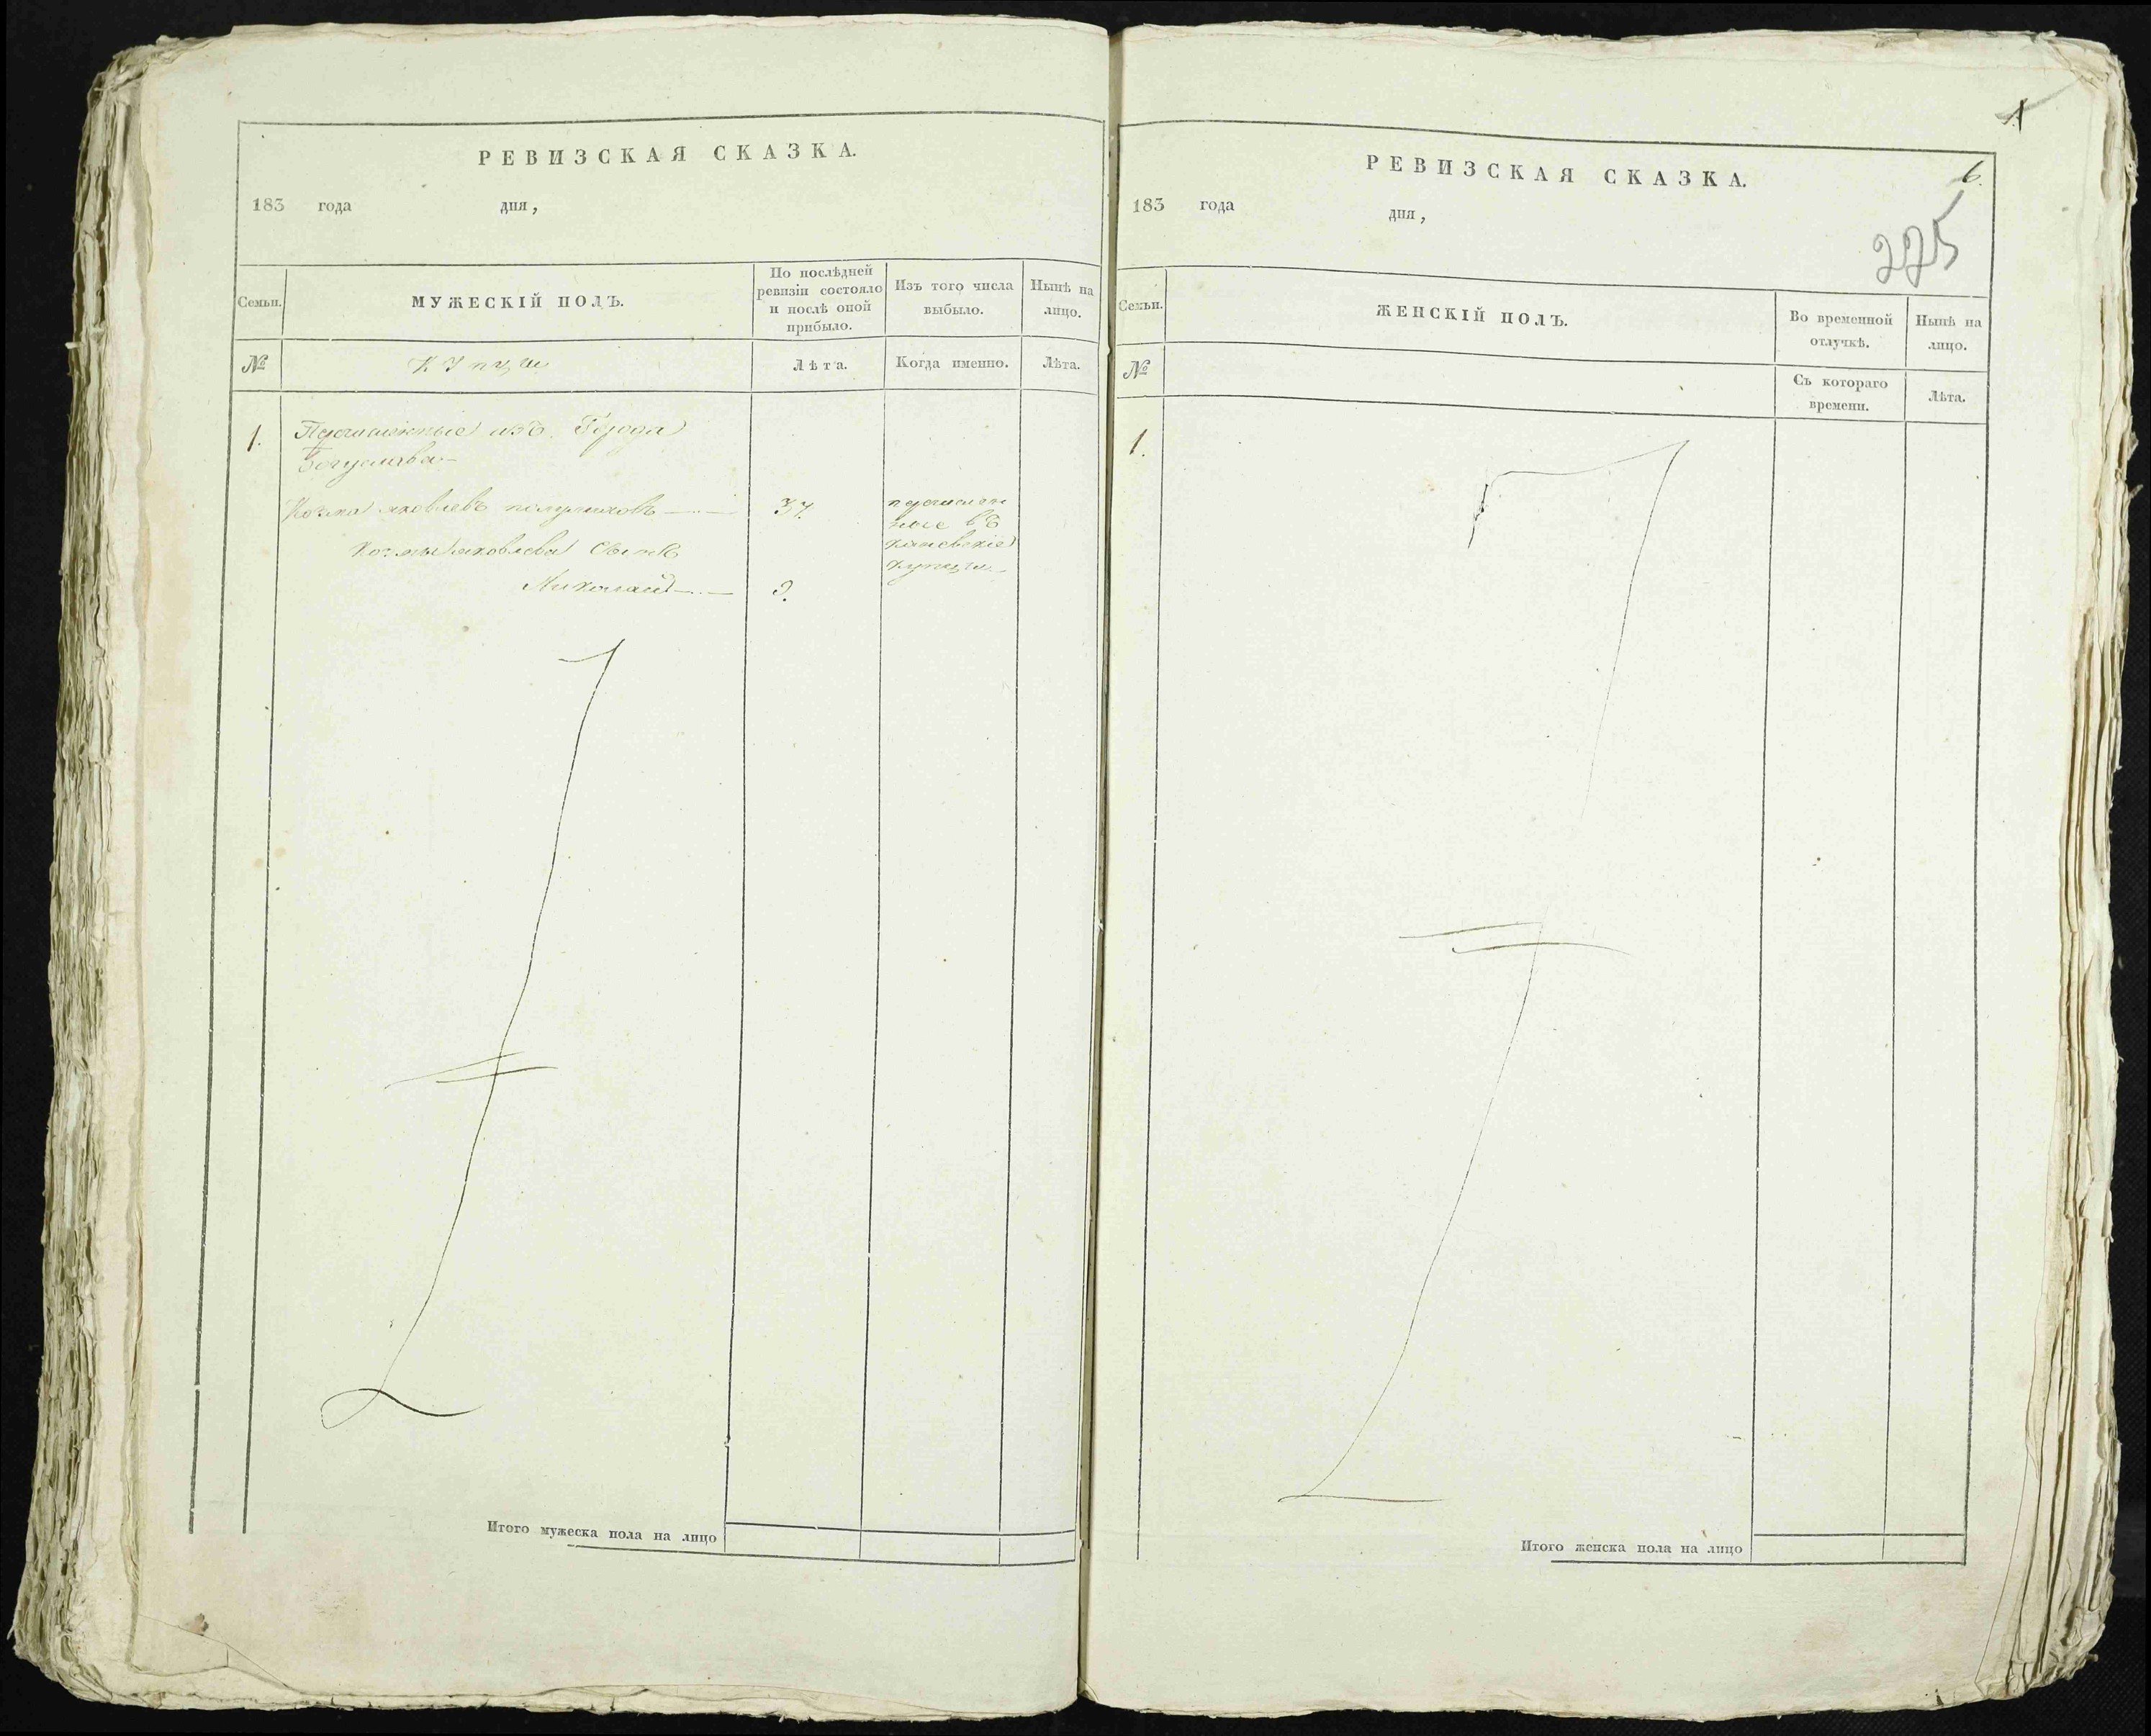 РЕВИЗСКАЯ СКАЗКА.
183 года дня,
Семьи.
МУЖЕСКІЙ ПОЛЪ.
По послѣдней ревизіи состояло и послѣ оной прибыло.
Изъ того числа выбыло.
Нынѣ на лицо.
№
Купцы
Лѣта.
Когда именно.
Лѣта.
1.
Перечисленные изъ Города
Богуслава
Козма яковлевъ
37.
перечислен
ные въ
Козмы яковлева сынъ
купцы
Николай
3.
Итого мужеска пола на лицо
1
6.
РЕВИЗСКАЯ СКАЗКА.
183 года дня,
225
Семьи.
ЖЕНСКІЙ ПОЛЪ.
Во временной отлучкѣ.
Нынѣ на лицо.
№
Съ котораго времени.
Лѣта.
1.
Итого женска пола на лицо